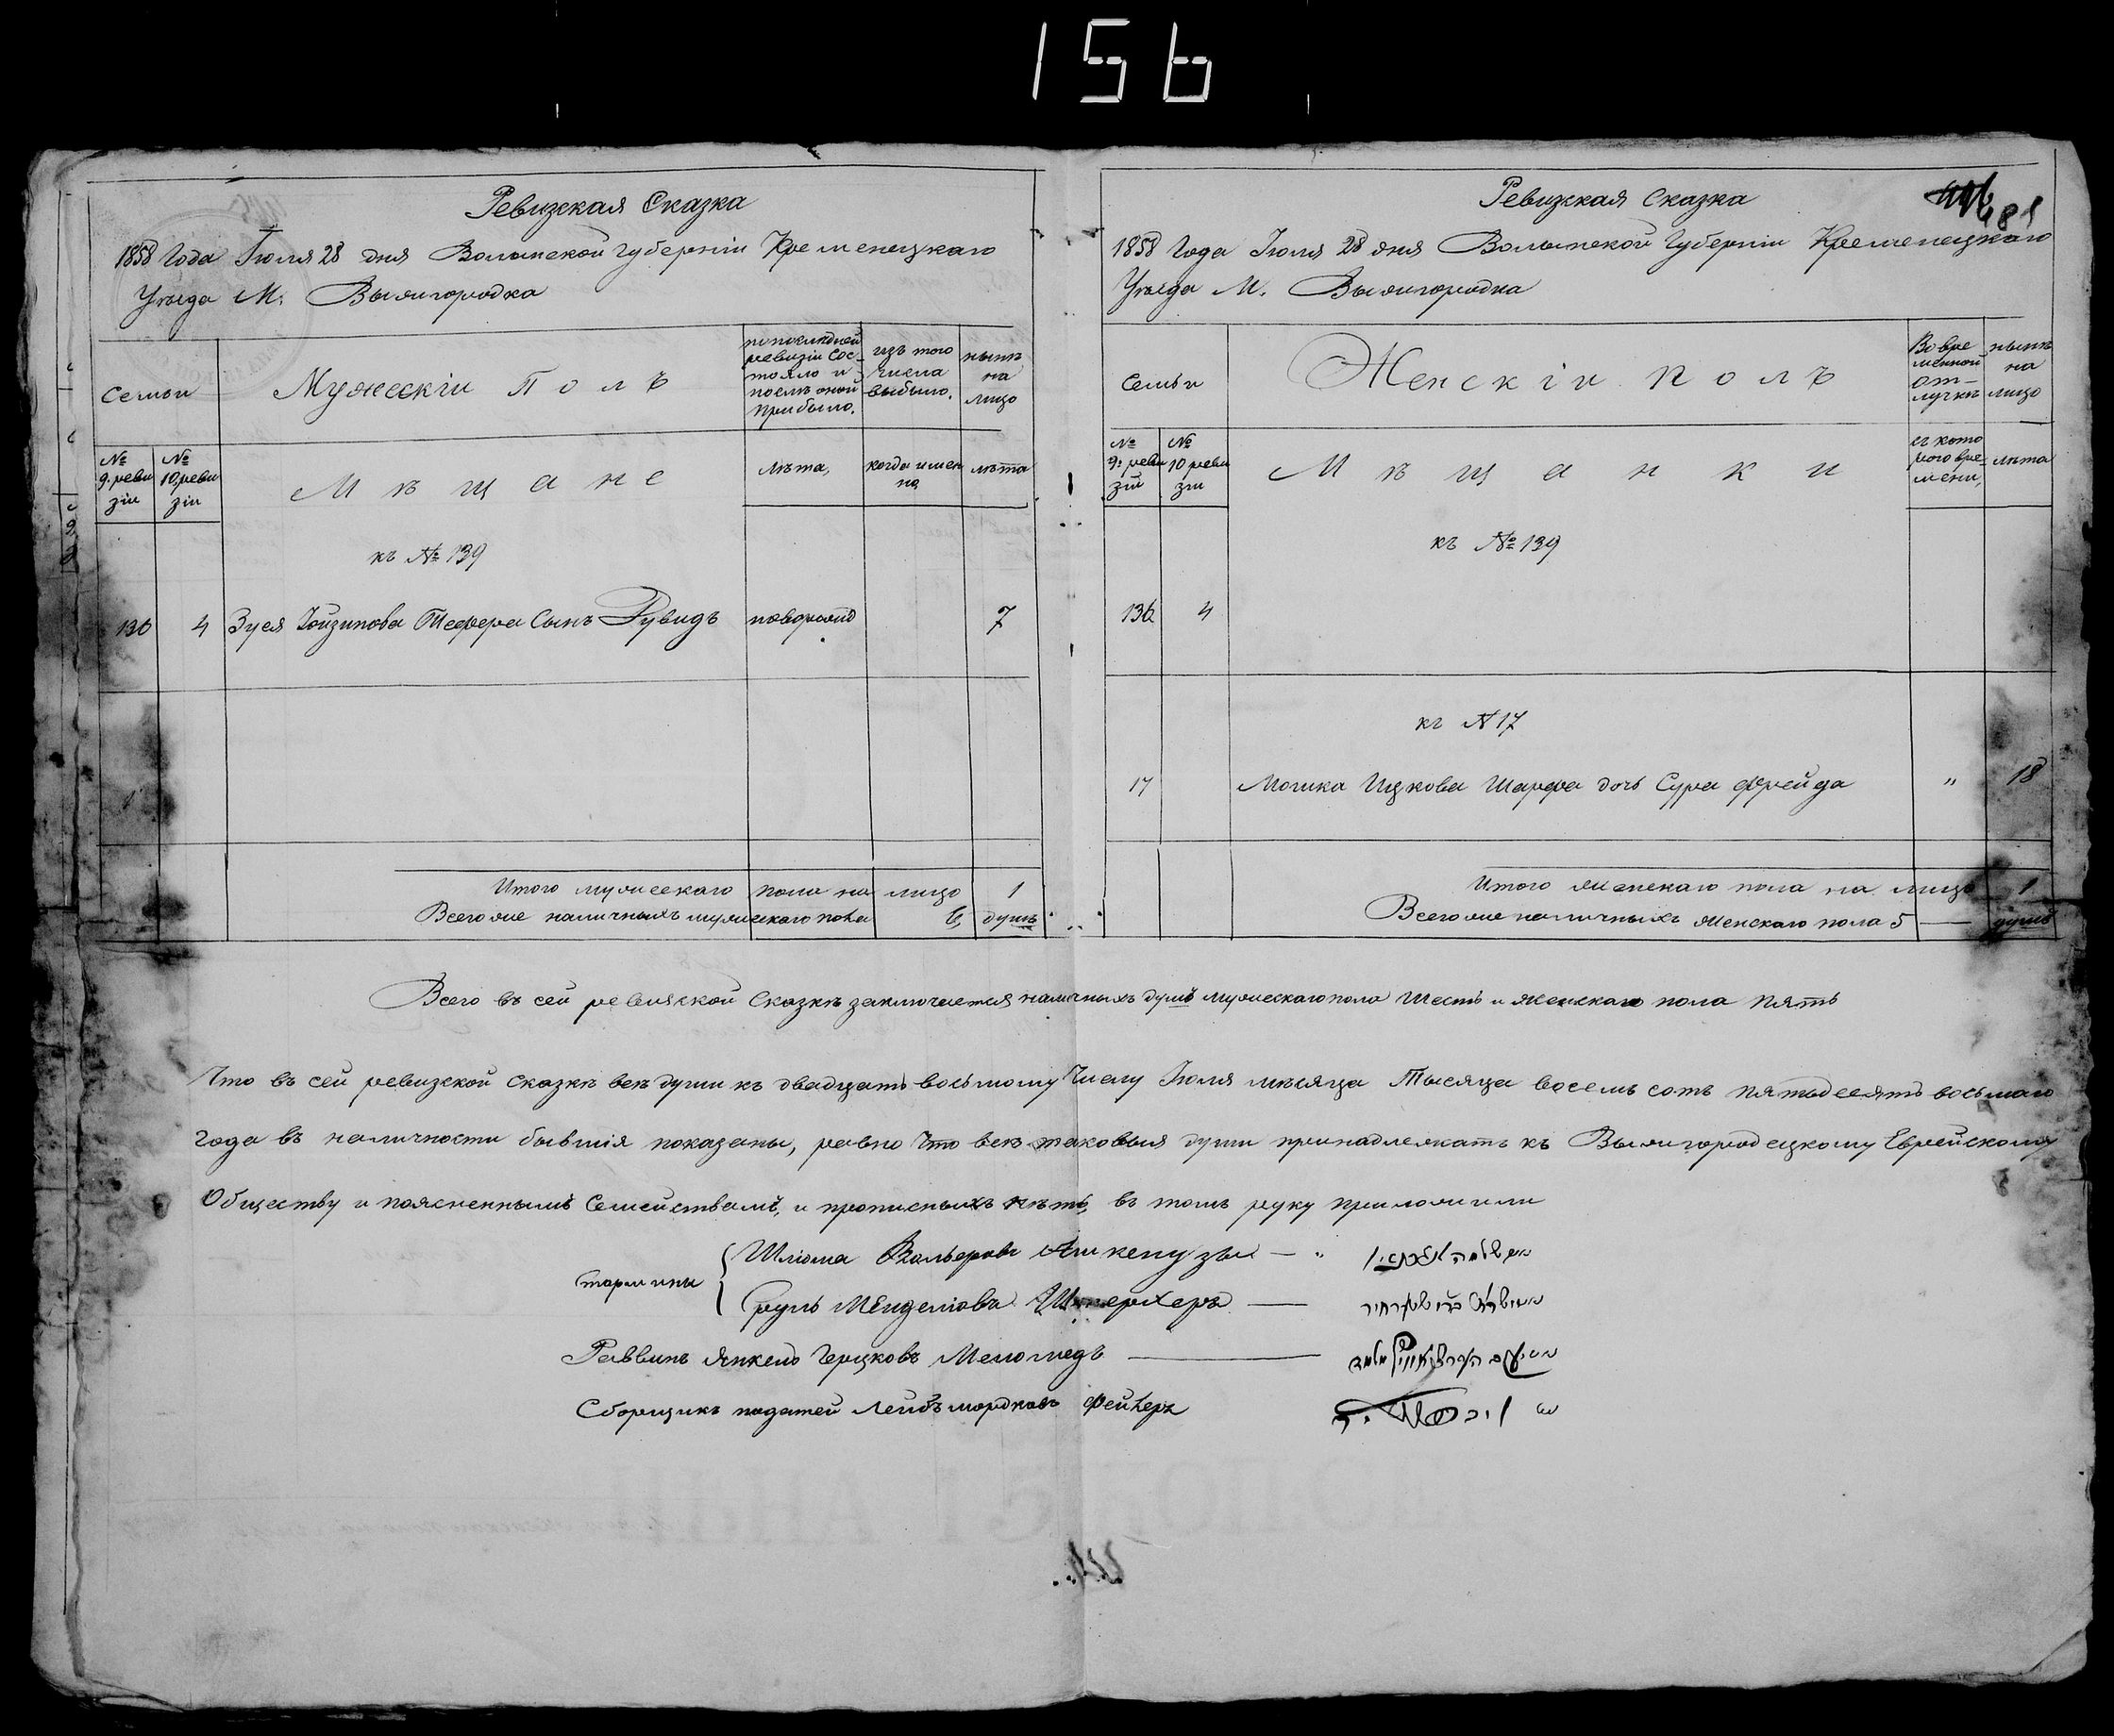 156
Ревизская Сказка
1858 Года Іюля 28 дня Волынской Губерніи Кременецкаго
Уѣзда М. Вышгородка
Семьи
Мужескій Полъ
по послѣдней ревизіи состояло и послѣ оной прибыло.
изъ того числа выбыло.
нынѣ на лицо
№ 9. реви зіи
№ 10. реви зіи
Мѣщане
лѣта,
когда имен но
лѣта
къ № 139
136 4 Зуся Тефера Сынъ Рувидъ 7
Итого мужескаго пола на лицо 1
Всего же наличныхъ мужескаго пола 6 душъ
Ревизская Сказка
481
1858 Года Іюля 28 дня Волынской Губерніи Кременецкаго
Уѣзда М. Вышгородка
Семьи
Женскій полъ
Во вре менной от- лучкѣ
нынѣ на лицо
№ 9. реви зіи
№ 10 реви зіи
Мѣщанки
съ кото рого вре- мени,
лѣта
къ № 139
136 4
къ № 17
17 Мошка Ицкова Шарфа дочь Сура Фрейда " 18
Итого женскаго пола на лицо 1
Всего же наличныхъ женскаго пола 5 — душъ
Всего въ сей ревизской Сказкѣ заключается наличныхъ душъ мужескаго пола Шесть и женскаго пола пять
Что въ сей ревизской сказкѣ всѣ души къ двадцать восьмому Числу Іюля мѣсяца Тысяца восемь сотъ пятьдесятъ восьмаго
Года въ наличности бывшія показаны, равно Что всѣ таковыя души принадлежатъ къ Вышгородецкому Еврейскому
Обществу и поясненнымъ Семействамъ, и прописныхъ нѣтъ, въ томъ руку приложили
Шліома Ашкенузы —
Сруль Мендліовъ —
Раввинъ Янкель Герцковъ Меломедъ —
Сборщикъ податей Лейбъ Мордковъ